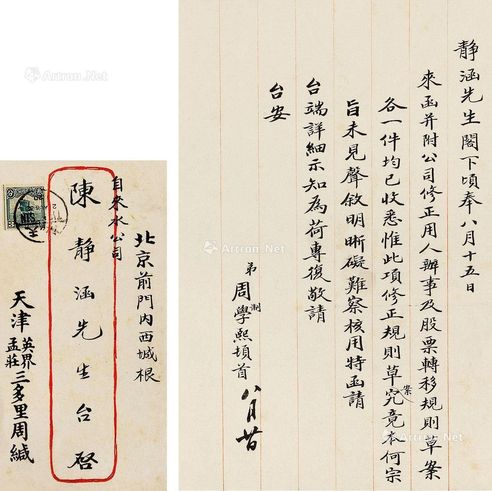 靜涵先生閣下頃奉八月十五日
來函并附公司修正用人辦事及股票轉移規則草案
各一件均已收悉惟此項修正規則草案究竟本何宗
旨未見聲敘明晰礙難察核用特函請
台端詳細示知為荷專復敬請
台安
弟周學熙頓首 八月
北京前門內西城根
自來水公司
陳靜涵先生台啓
天津英界孟莊三多里周緘
Artron.Net
Artron.Net
Artron.Net
Artron.Net